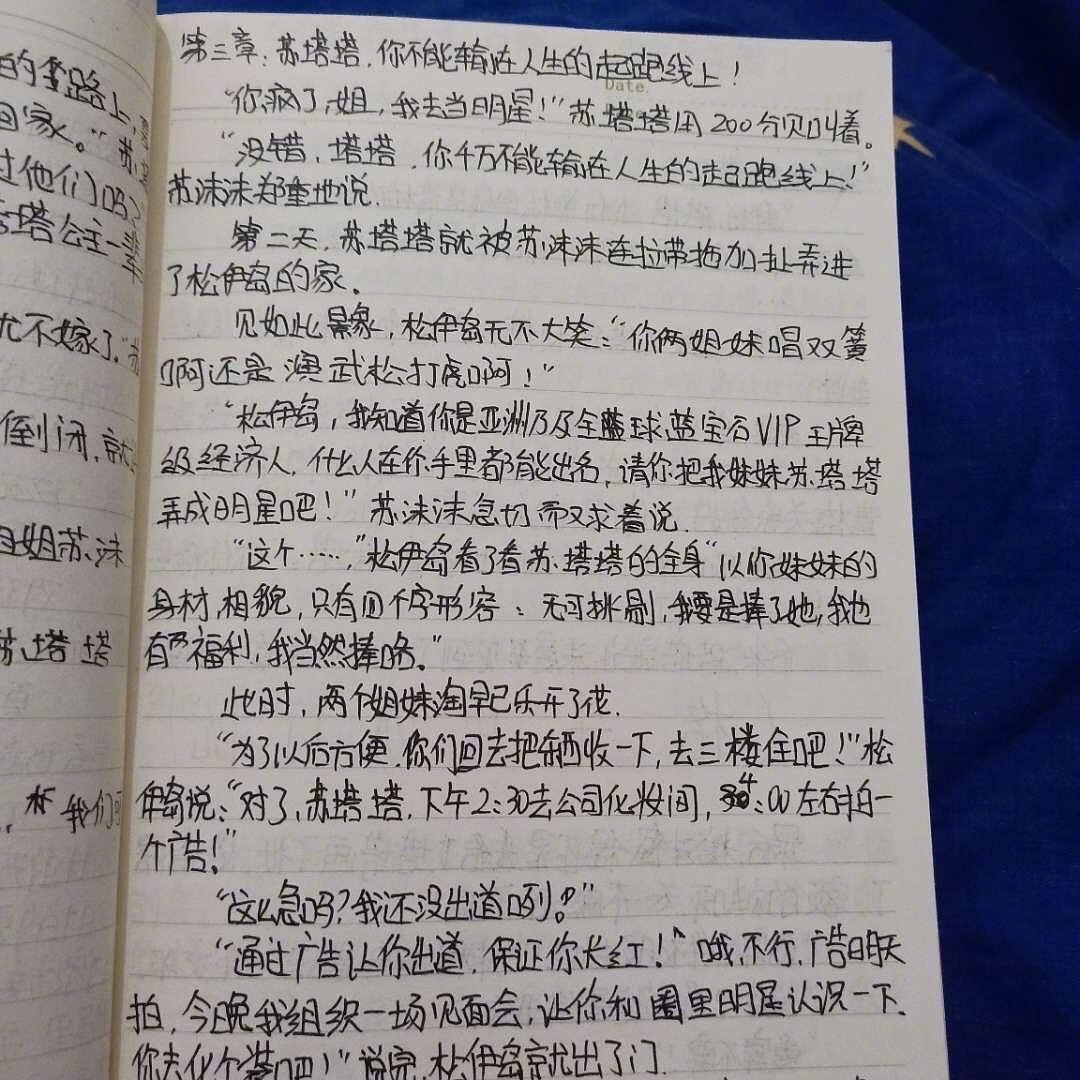 的套路上,
回家。"苏
过他们吗?
塔公主一
尤不嫁了."
倒闭,就
姐苏沫
苏塔塔
我们
第三章:苏塔塔,你不能输在人生的起跑线上!
Date.
"你疯了,姐,我去当明星!"苏塔塔用200分贝叫着。
"没错,塔塔,你千万不能输在人生的起跑线上!"
苏沫沫郑重地说.
第二天,苏塔塔就被苏沫沫连拉带拖加扯弄进
了松伊岛的家。
见如此景象,松伊岛无不大笑:"你俩姐妹唱双簧
啊还是演武松打虎啊!"
"松伊岛,我知道你是亚洲乃及全蓝球蓝宝石VIP王牌
级经济人,什么人在你手里都能出名,请你把我妹妹苏塔塔
弄成明星吧!"苏沫沫急切而又求着说.
"这个……"松伊岛看了看苏塔塔的全身"以你妹妹的
身材,相貌,只有四个字形容:无可挑剔,我要是捧了她,我也
有福利,我当然捧咯。"
此时,两个姐妹淘早已乐开了花.
"为了以后方便,你们回去把东西收一下,去三楼住吧!"松
伊岛说:"对了,苏塔塔,下午2:30去公司化妆间,4:00左右拍一
个广告!"
"这么急吗?我还没出道咧。"
"通过广告让你出道,保证你长红!^哦,不行,广告明天
拍,今晚我组织一场见面会,让你和圈里明星认识一下.
你去化个装吧!"说完,松伊岛就出了门.